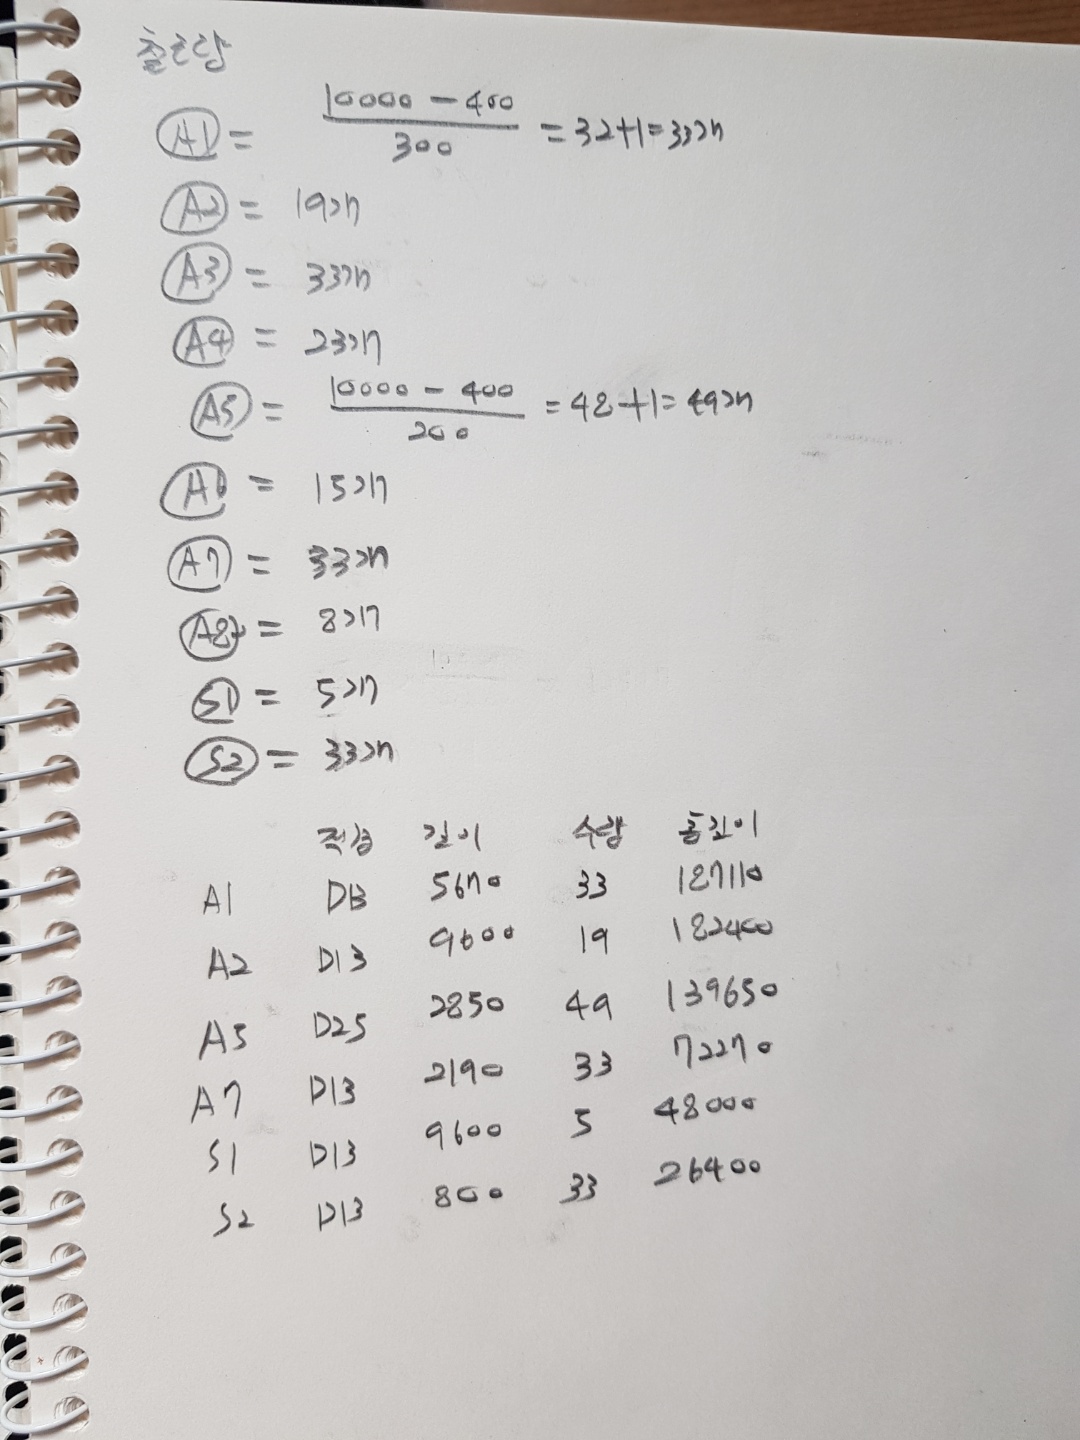 철근량
A1 = 10000 - 400 / 300 = 32+1=33개
A2 = 19개
A3 = 33개
A4 = 23개
A5 = 10000 - 400 / 200 = 48+1=49개
A6 = 15개
A7 = 33개
A8 = 8개
S1 = 5개
S2 = 33개
직경 길이 수량 총길이
A1 D13 5670 33 187110
A2 D13 9600 19 182400
A5 D25 2850 49 139650
A7 D13 2190 33 72270
S1 D13 9600 5 48000
S2 D13 800 33 26400